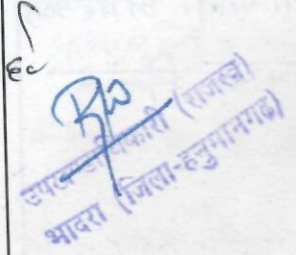 उपखण्ड अधिकारी (राजस्व)
भादरा (जिला-हनुमानगढ़)